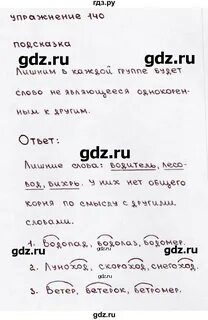 упражнение 140
gdz.ru
подсказка
Лишним в каждой группе будет
слово не являющееся однокорен-
ным к другим.
gdz.ru
Ответ:
Лишние слова: водитель, лесо-
вод, вихрь. У них нет общего
корня по смыслу с другими
словами.
gdz.ru
1. Водопад, водолаз, водомер.
2. Луноход, скороход, снегоход.
3. Ветер, ветерок, ветромер.
gdz.ru